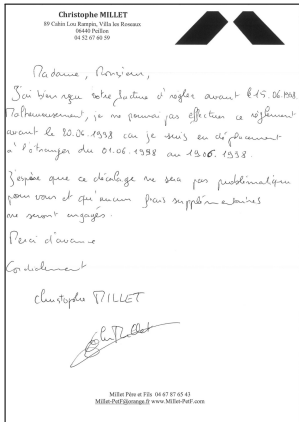 Christophe MILLET
89 Cabin Lou Rampin, Villa les Roseaux
06440 Peillon
04 52 67 60 59
Madame, Monsieur,
J'ai bien reçu votre facture à régler avant le 15.06.1998.
Malheureusement, je ne pourrai pas effectuer ce règlement
avant le 20.06.1998 car je suis en déplacement
à l'étranger du 01.06.1998 au 19.06.1998.
J'espère que ce décalage ne sera pas problématique
pour vous et qu'aucun frais supplémentaires
ne seront engagés.
Merci d'avance
Cordialement
Christophe MILLET
Millet Père et Fils 04 67 87 65 43
Millet-PetF@orange.fr www.Millet-PetF.com